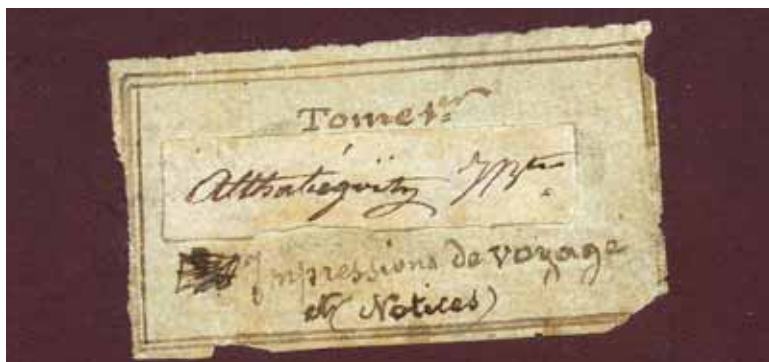 Tome 1er
Althabegoïty JBte
Impressions de voyage
et (Notices)